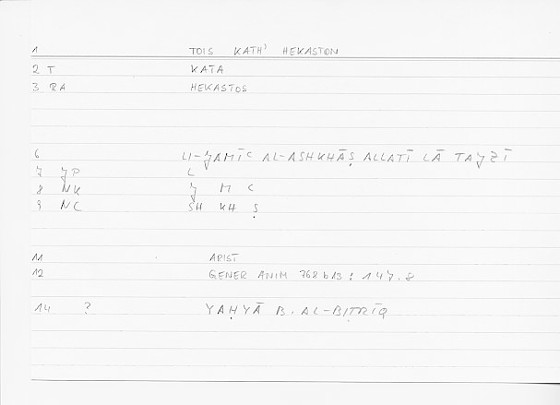 1 TOIS KATH' HEKASTON
2 T KATA
3 RA HEKASTOS
6 LI-JAMĪC AL-ASHKHĀṢ ALLATĪ LĀ TAJZĪ
7 JP L
8 NK J M C
9 NC SH KH Ṣ
11 ARIST
12 GENER ANIM 768 b13 : 147.8
14 ? YAḤYĀ B. AL-BIṬRĪQ